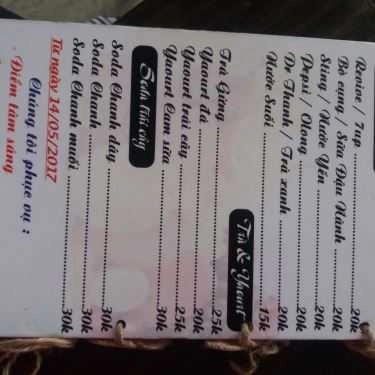 Revive / 7up ............ 20k
Bò cụng / Sữa Đậu Nành ............ 20k
Sting / Nước Yến ............ 20k
Pepsi / Olong ............ 20k
Dr Thanh / Trà xanh ............ 20k
Nước Suối ............ 15k
Trà & Yaourt
Trà Gừng ............ 25k
Yaourt đá ............ 20k
Yaourt trái cây ............ 25k
Yaourt Cam sữa ............ 30k
Soda trái cây
Soda Chanh dây ............ 30k
Soda Chanh ............ 30k
Soda Chanh muối ............ 30k
Từ ngày 14/05/2017
Chúng tôi phục vụ :
- Điểm tâm sáng